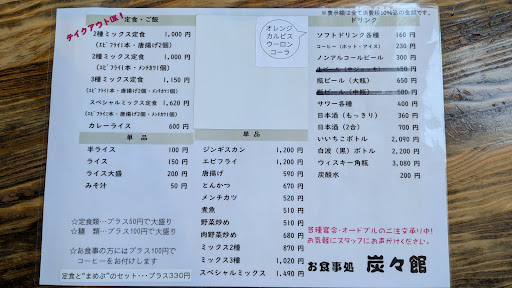 ※表示額は全て消費税10%込の金額です。
テイクアウトOK!
定食・ご飯
2種ミックス定食 1,000円
(エビフライ1本・唐揚げ2個)
2種ミックス定食 1,000円
(エビフライ1本・メンチカツ1個)
3種ミックス定食 1,150円
(エビフライ1本・唐揚げ2個・メンチカツ1個)
スペシャルミックス定食 1,620円
(エビフライ2本・唐揚げ2個・メンチカツ1個)
カレーライス 600円
単品
半ライス 100円
ライス 150円
ライス大盛 200円
みそ汁 50円
☆定食類…プラス50円で大盛り
☆麺 類…プラス100円で大盛り
☆お食事の方にはプラス100円で
コーヒーをお付けします
定食と"まめぶ"のセット・・・プラス330円
オレンジ
カルピス
ウーロン
コーラ
単品
ジンギスカン 1,200円
エビフライ 1,200円
唐揚げ 590円
とんかつ 670円
メンチカツ 520円
煮魚 510円
野菜炒め 510円
肉野菜炒め 680円
ミックス2種 870円
ミックス3種 1,020円
スペシャルミックス 1,490円
ドリンク
ソフトドリンク各種 160円
コーヒー(ホット・アイス) 230円
ノンアルコールビール 300円
生ビール(中ジョッキ) 450円
瓶ビール(大瓶) 650円
瓶ビール(中瓶) 500円
サワー各種 400円
日本酒(もっきり) 360円
日本酒(2合) 700円
いいちこボトル 2,090円
白波(黒)ボトル 2,200円
ウィスキー角瓶 3,080円
炭酸水 220円
各種宴会・オードブルのご注文承り中!
お気軽にスタッフにお声かけください。
お食事処 炭々館